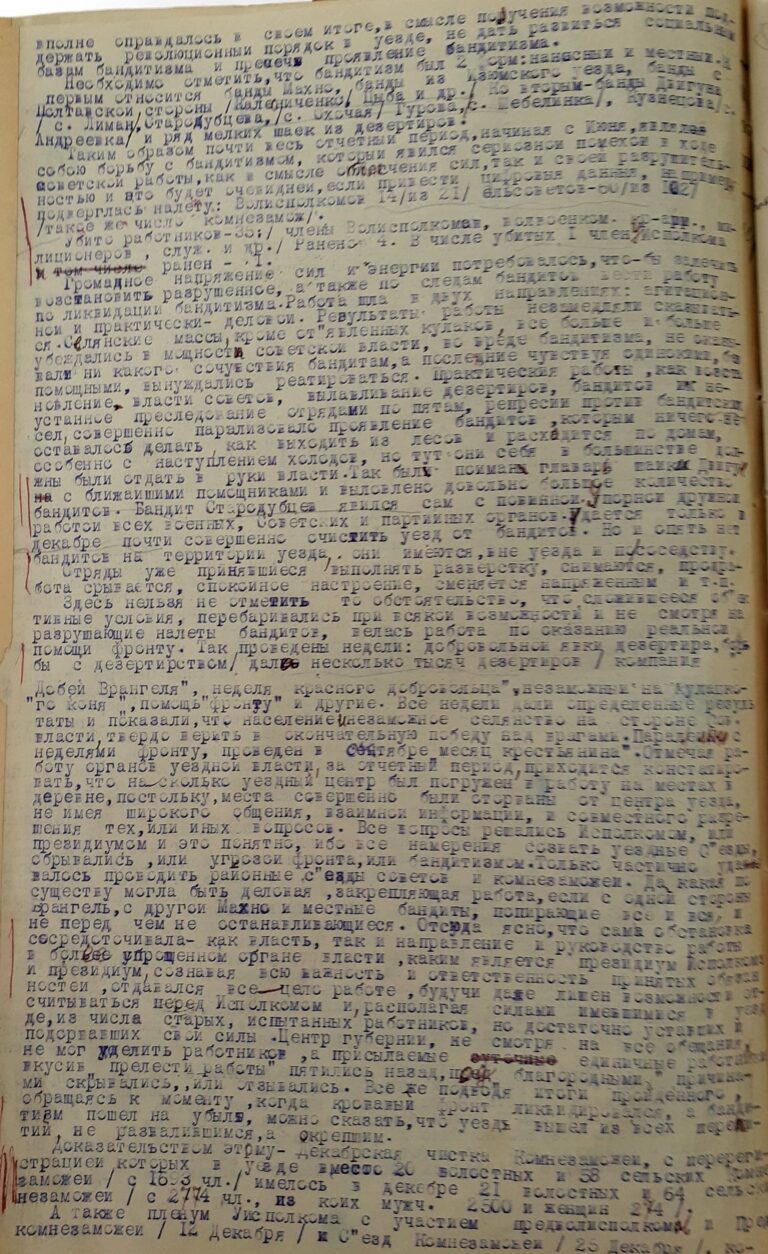 вполне оправдалось в своем итоге,в смысле получения возможности под-
держать революционный порядок в уезде, не дать развиться социальным
базам бандитизма и пресечь проявление бандитизма.
Необходимо отметить,что бандитизм был 2 форм:наносный и местный.К
первым относится банды Махно, банды из Изюмского уезда, банды с
Полтавской стороны /Калениченко/ Цыба и др./ Ко вторым-банды Двигуна
/ с. Лиман,Стародубцева,/с. Охочая/ Гурова,/с. Шебелинка/, Кузнецова/с.
Андреевка/ и ряд мелких шаек из дезертиров.
Таким образом почти весь отчетный период,начиная с Июня,являлся
собою борьбу с бандитизмом, который явился сериозной помехой в ходе
советской работы,как в смысле отвлечения сил,так и своей разрушитель-
ностью и это будет очевидней,если привести цифровыя данныя, например
подверглась налету: Волисполкомов 14/из 21/ сельсоветов-60/из
/такое же число комнезамож/.
Убито работников-35:/ члены Волисполкомов, волвоенком. кр-арм., ми-
лиционеров , служ. и др./ Ранено- 4. В числе убитых I член Уисполкома
и том числе ранен - I.
Громадное напряжение сил и энергии потребовалось,что-бы залечить
возстановить разрушенное, а также по следам бандитов вести работу
по ликвидации бандитизма.Работа шла в двух направлениях: агитацион-
ной и практически- деловой. Результаты работы незамедляли сказывать-
ся.Селянские массы,кроме от"явленных кулаков, все больше и больше
убеждались в мощности советской власти, во вреде бандитизма, не оказы-
вали ни какого сочувствия бандитам,а последние чувствуя одинокими,без
помощными, вынуждались реатироваться. Практическия работы ,как возста
новление власти советов, вылавливание дезертиров, бандитов их не-
устанное преследование отрядами по пятам, репресии против бандитских
сел,совершенно парализовало проявление бандитов ,которым ничего не
оставалось делать как выходить из лесов и расходится по домам,
особенно с наступлением холодов, но тут они себя в большинстве дол-
жны были отдать в руки власти.Так были поиманы главарь шайки Двигу
на с ближайшими помощниками и выловлено довольно большое количество
бандитов. Бандит Стародубцев явился сам с повинной.Упорной дружной
работой всех военных, Советских и партийных органов.Удается только в
декабре почти совершенно очистить уезд от бандитов. Но и опять нет
бандитов на территории уезда, они имеются,вне уезда и по соседству.
Отряды уже принявшиеся выполнять разверстку, снимаются, продра-
бота срывается, спокойное настроение, сменяется напряженным и т.п.
Здесь нельзя не отметить то обстоятельство, что сложившееся об"ек
тивные условия, перебаривались при всякой возможности и не смотря на
разрушающие налеты бандитов, велась работа по оказанию реальной
помощи фронту. Так проведены недели: добровольной явки дезертира,борь
бы с дезертирством/ дало несколько тысяч дезертиров / компания
"Добей Врангеля", неделя красного добровольца",незаможный на кулацко-
"го коня ",помощь"фронту" и другие. Все недели дали определенные резуль
таты и показали,что население незаможное селянство на стороне Сов.
власти,твердо верить в окончательную победу над врагами.Параленно с
неделями фронту, проведен в Сентябре месяц крестьянина".Отмечая ра-
боту органов уездной власти,за отчетный период,приходится констатиро-
вать,что насколько уездный центр был погружен в работу на местах в
деревне,постольку,места совершенно были оторваны от центра уезда,
не имея широкого общения, взаимной информации, и совместного разре-
шения тех,или иных вопросов. Все вопросы решались Исполкомом, или
президиумом и это понятно, ибо все намерения созвать уездные С"езды,
обрывались ,или угрозой фронта,или бандитизмом.Только частично уда-
валось проводить районные с"езды советов и комнезаможей. Да какая по
существу могла быть деловая ,закрепляющая работа,если с одной стороны
Врангель,с другой Махно и местные бандиты, попирающие все и вся, и
не перед чем не останавливающиеся. Отсюда ясно,что сама обстановка
сосредоточивала- как власть, так и направление и руководство работы
в более упрощенном органе власти ,каким является президиум Исполкома
и президиум,сознавая всю важность и ответственность принятых обязан
ностей ,отдавался все-цело работе ,будучи даже лишен возможности от-
считываться перед Исполкомом и,располагая силами имевшимися в уез-
де,из числа старых, испытанных работников, но достаточно уставших и
подорвавших свои силы .Центр губернии, не смотря на все обещания,
не мог уделить работников ,а присылаемые единичные работники
вкусив "прелести работы" пятились назад,под благородными" причина-
ми скрывались,,или отзывались. Все же подводя итоги пройденного ,
обращаясь к моменту ,когда кровавый фронт ликвидировался, а банди-
тизм пошел на убыль, можно сказать,что уезд вышел из всех перепи-
тий, не развалившимся,а окрепшим.
Доказательством этому- декабрская чистка Комнезаможей, с перереги-
страцией,которых в уезде вместо 20 волостных и 58 сельских Комне
заможей / с 1693 чл./ имелось в декабре 21 волостных и 64 сельски
незаможей / с 2774 чл., из коих мужч. 2500 и женщин 274 /.
А также пленум Уисполкома с участием предволисполкома и Пред
комнезаможей / 12 Декабря / и С"езд Комнезаможей / 25 Декабря /, ко-